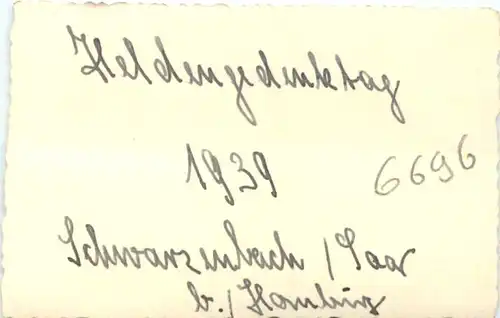 Heldengedenktag
1939 6696
Schwarzenbach / Saar
b. / Homburg